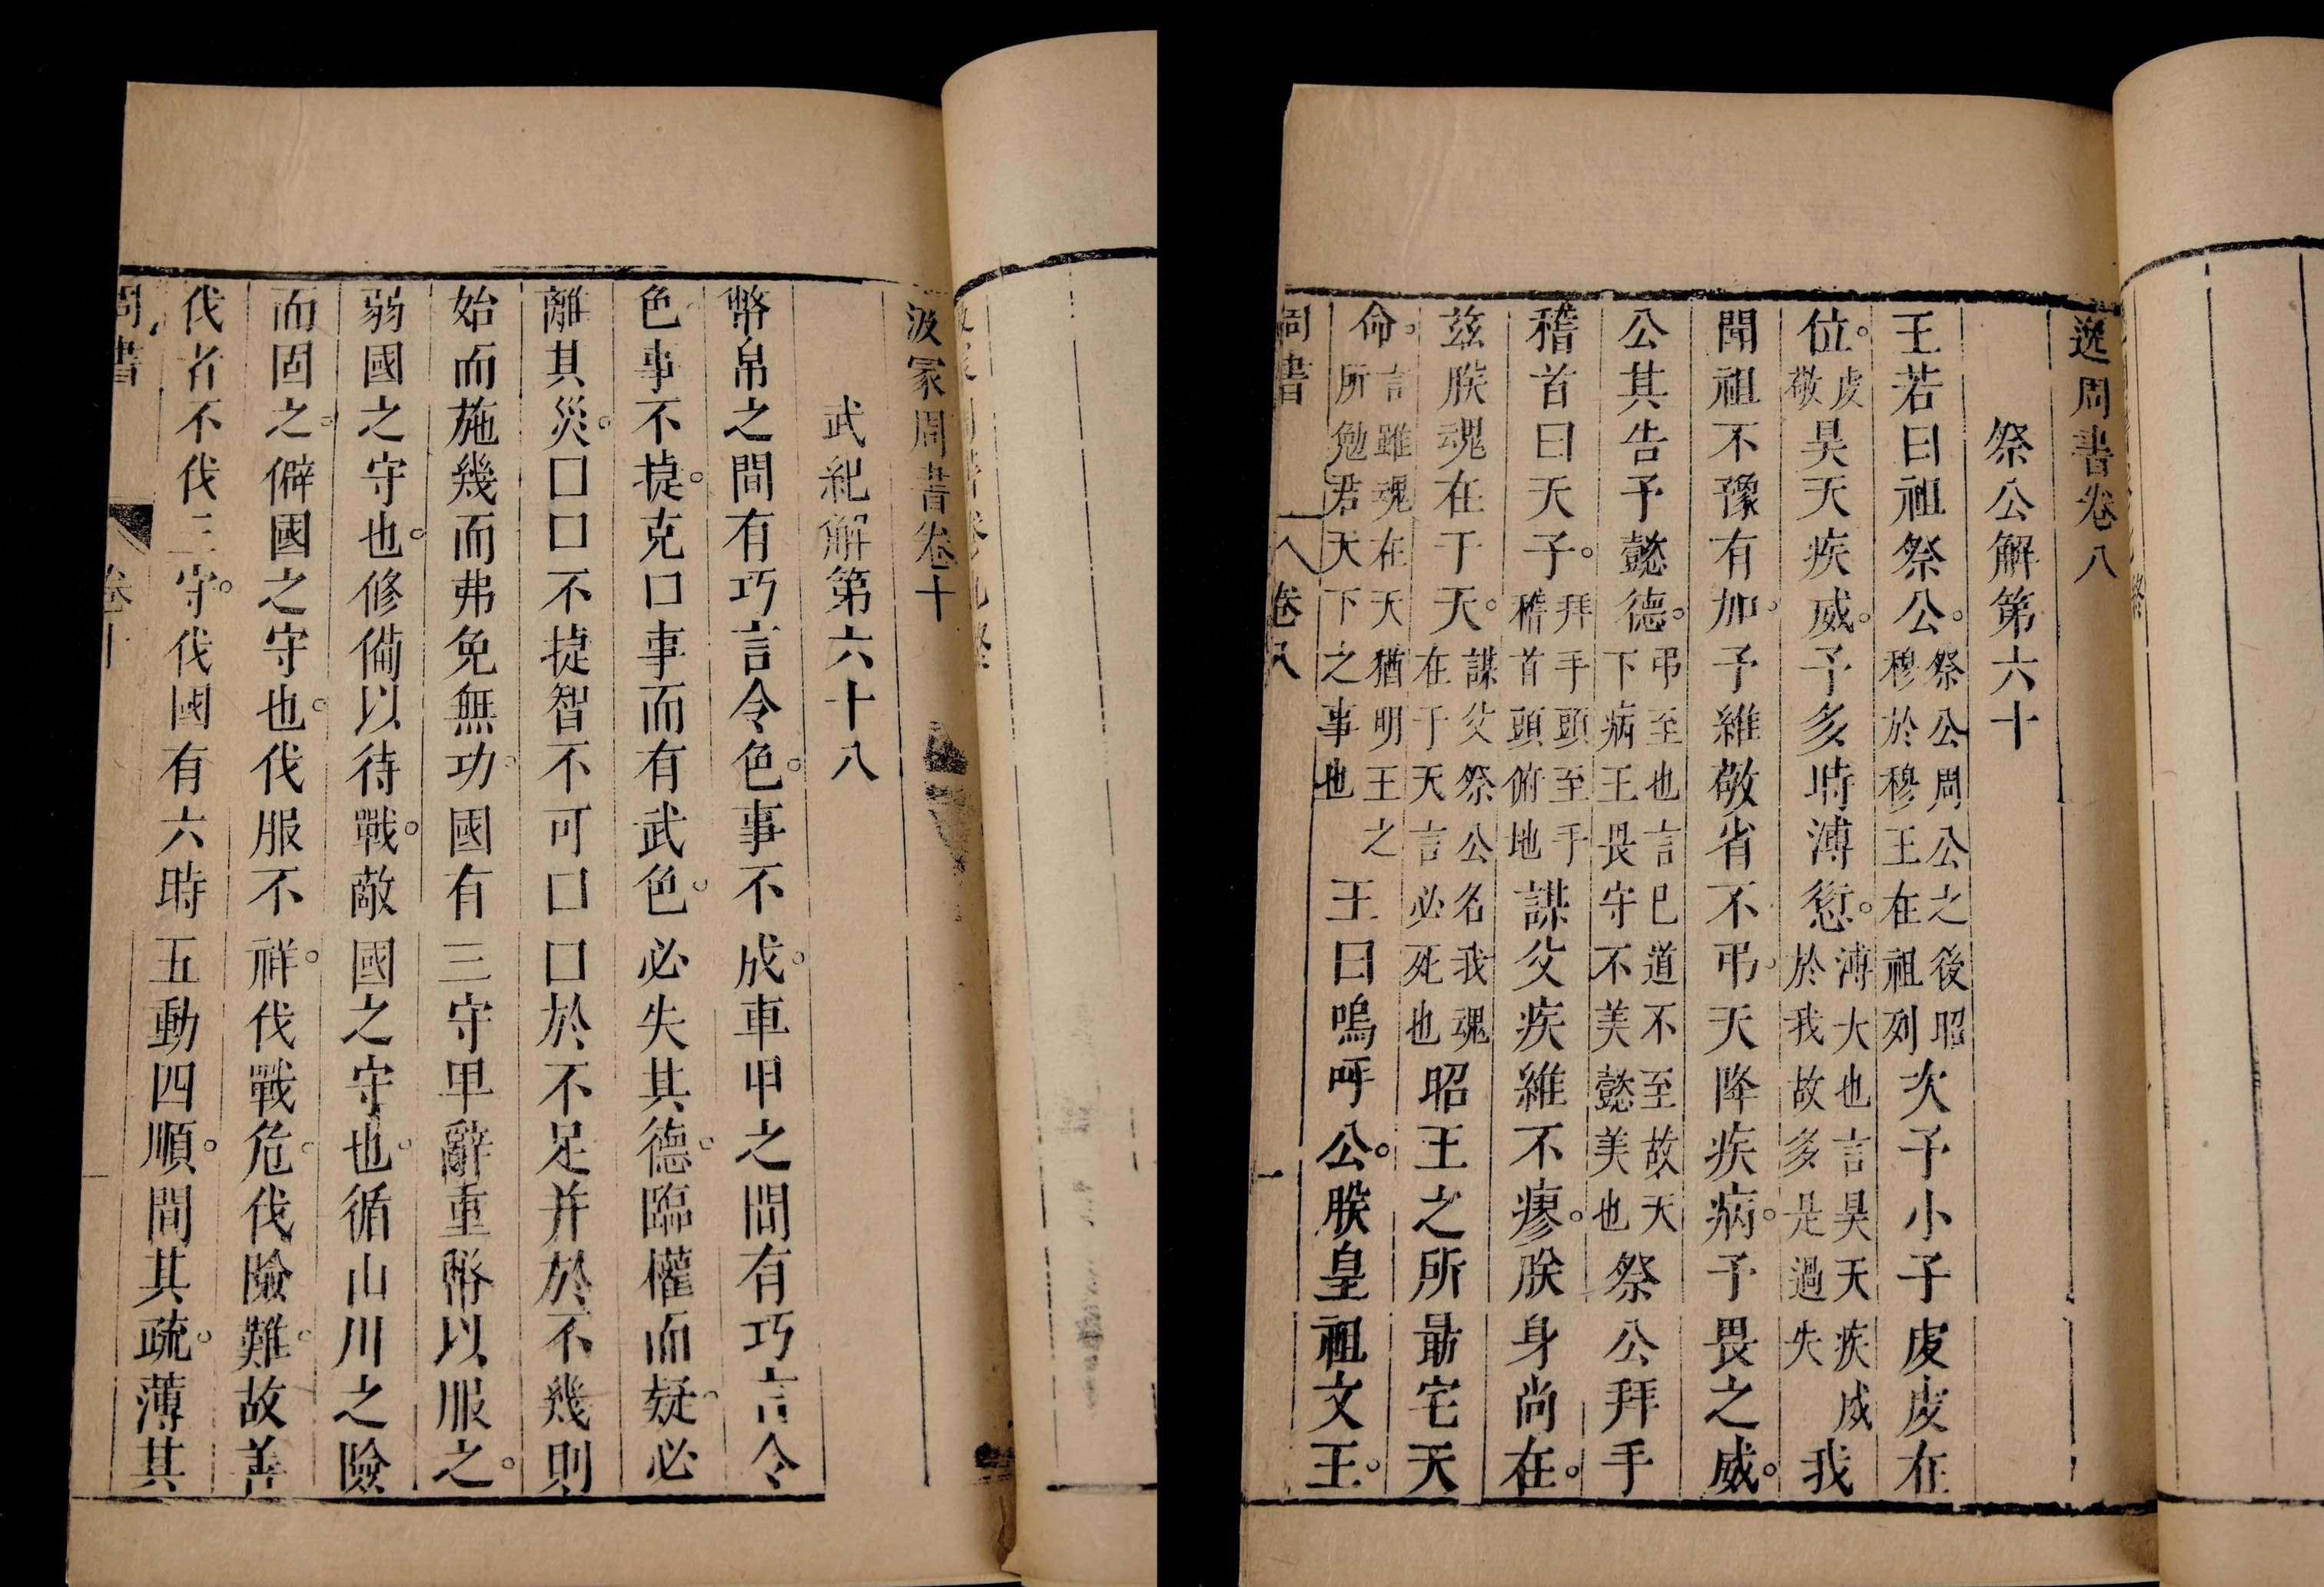 逸周書卷八
祭公解第六十
王若曰祖祭公。祭公周公之後昭穆於穆王在祖列次予小子虔虔在
位。虔敬昊天疾威。予多時溥愆。溥大也言昊天疾威於我故多是過失我
聞祖不豫有加。予維敬省不弔。天降疾病。予畏之威。
公其告予懿德。弔至也言已道不至故天下病王畏守不美懿美也祭公拜手
稽首曰天子。拜手頭至手稽首頭俯地謀父疾維不瘳。朕身尚在。
茲朕魂在于天。謀父祭公名我魂在于天言必死也昭王之所勗宅天
命。言雖魂在天猶明王之所勉君天下之事也王曰嗚呼公。朕皇祖文王。
周書 卷八 一
汲冢周書卷十
武紀解第六十八
幣帛之間有巧言令色。事不成。車甲之間有巧言令
色。事不捷。克口事而有武色。必失其德。臨權而疑。必
離其災。口口不捷智不可口口於不足并於不幾則
始而施幾而弗免無功。國有三守卑辭重幣以服之。
弱國之守也。修備以待戰。敵國之守也。循山川之險
而固之。僻國之守也。伐服不祥。伐戰危。伐險難。故善
伐者不伐三守。伐國有六時五動四順。間其疏。薄其
周書 卷十